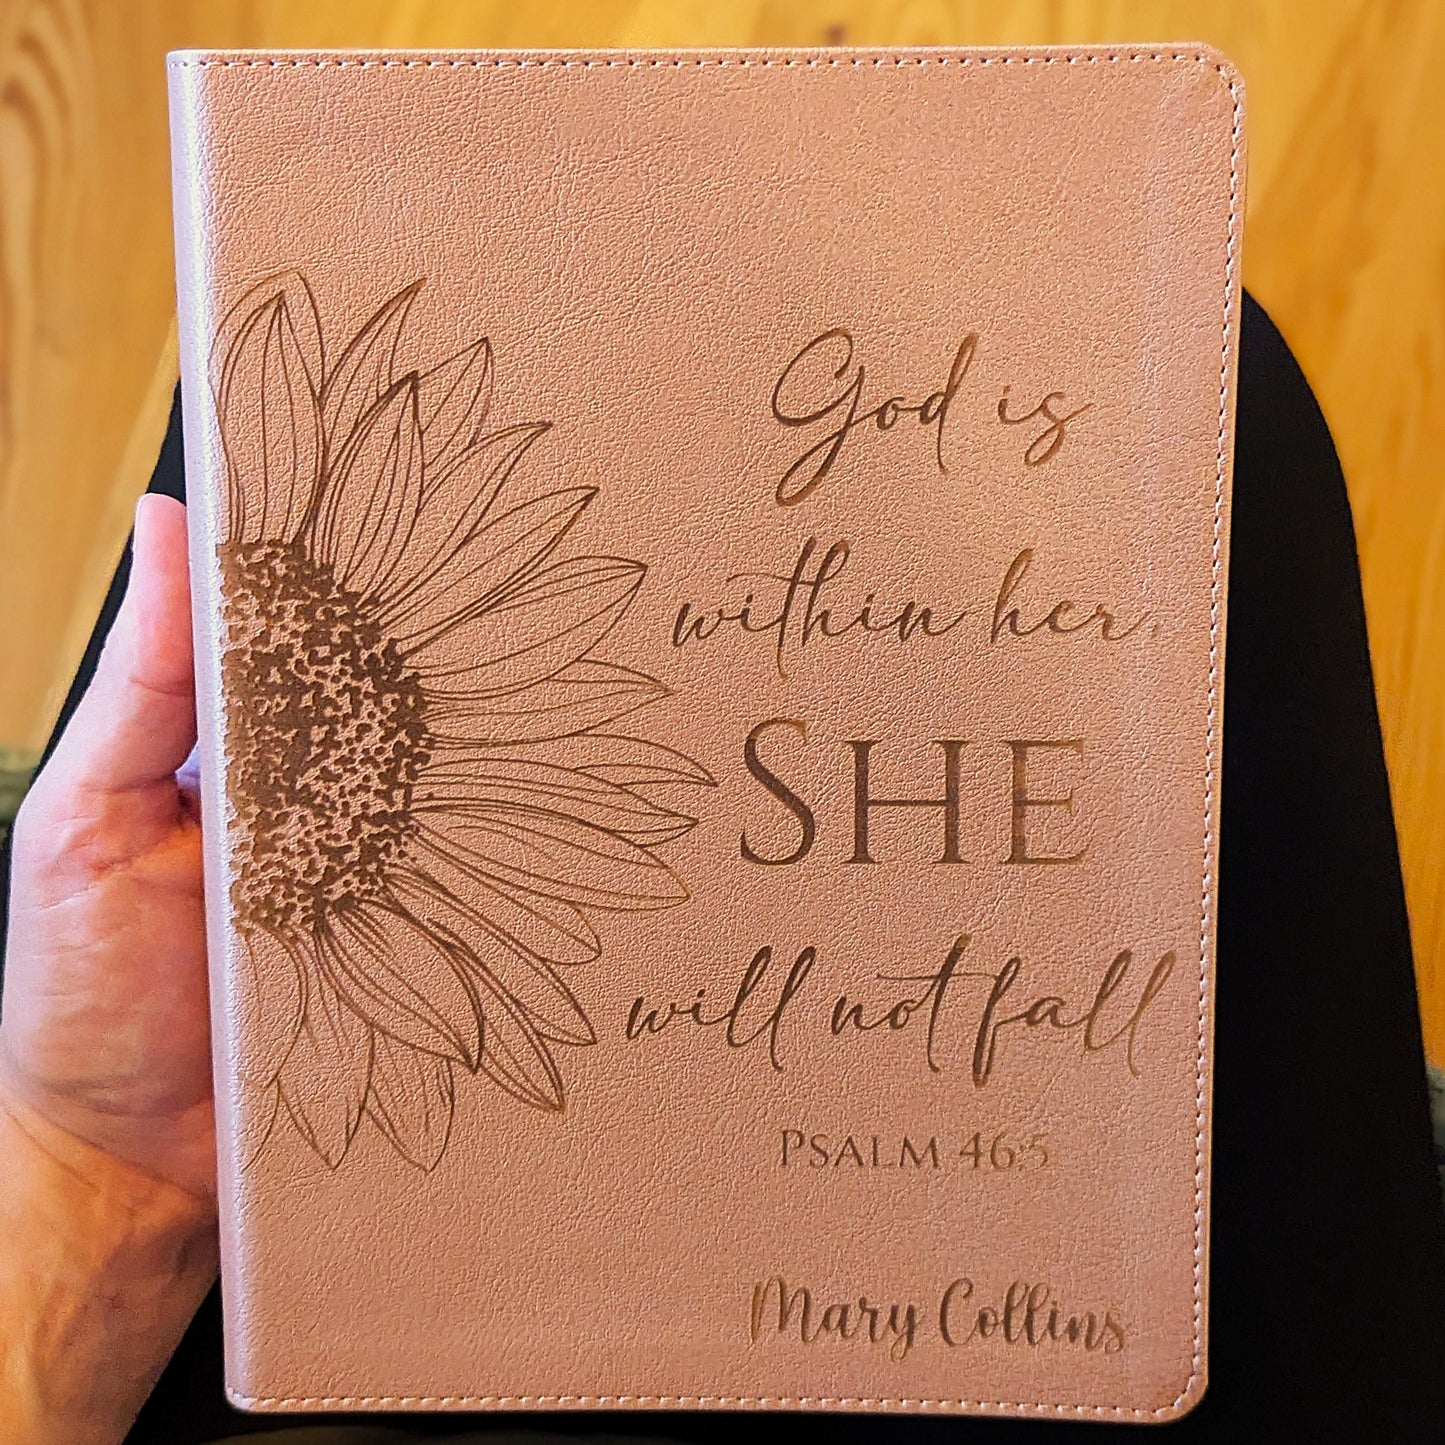 God is
within her,
SHE
will not fall
PSALM 46:5
Mary Collins